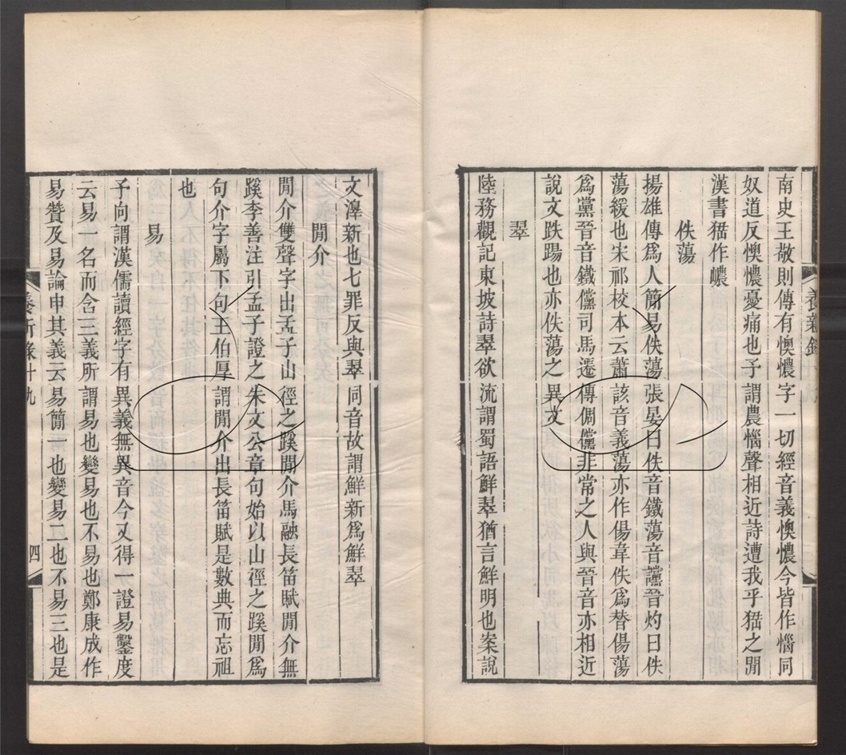 南史王敬則傳有懊憹字一切經音義懊憹今皆作惱同
奴道反懊憹憂痛也予謂農惱聲相近詩遭我乎峱之閒
漢書峱作巎
佚蕩
揚雄傳爲人簡易佚蕩張晏曰佚音鐵蕩音讜晉灼曰佚
蕩緩也宋祁校本云蕭該音義蕩亦作傷韋佚爲替傷蕩
爲黨晉音鐵儻司馬遷傳倜儻非常之人與晉音亦相近
說文跌踼也亦佚蕩之異文
翠
陸務觀記東坡詩翠欲流謂蜀語鮮翠猶言鮮明也案說
養新錄
文濢新也七罪反與翠同音故謂鮮新爲鮮翠
閒介
閒介雙聲字出孟子山徑之蹊閒介馬融長笛賦閒介無
蹊李善注引孟子證之朱文公章句始以山徑之蹊閒爲
句介字屬下句王伯厚謂閒介出長笛賦是數典而忘祖
也
易
予向謂漢儒讀經字有異義無異音今又得一證易鑿度
云易一名而含三義所謂易也變易也不易也鄭康成作
易贊及易論申其義云易簡一也變易二也不易三也是
養新錄十九
四